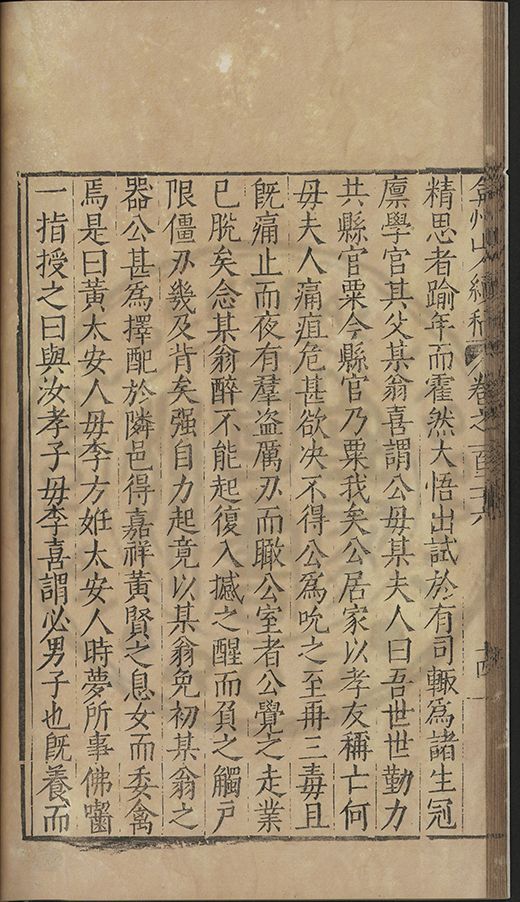 弇州山人續稿 卷之一百二十六 十四
精思者踰年而霍然大悟出試於有司輙為諸生冠
廪學官其父某翁喜謂公毋某夫人曰吾世世勤力
共縣官粟今縣官乃粟我矣公居家以孝友稱亡何
毋夫人痛疽危甚欲决不得公為吮之至再三毒且
旣痛止而夜有羣盗厲刃而瞰公室者公覺之走業
已脫矣念某翁醉不能起復入撼之醒而負之觸戸
限僵刃幾及背矣强自力起竟以某翁免初某翁之
器公甚為擇配於隣邑得嘉祥黄賢之息女而委禽
焉是曰黄太安人毋李方姙太安人時夢所事佛囓
一指授之曰與汝孝子毋李喜謂必男子也旣養而